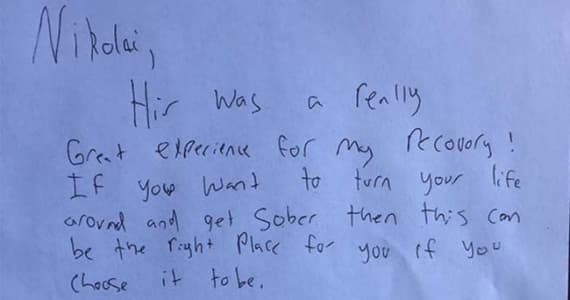 Nikolai,
His was a really
Great experience for my recovory!
If you want to turn your life
around and get Sober then this can
be the right Place for you if you
choose it to be.